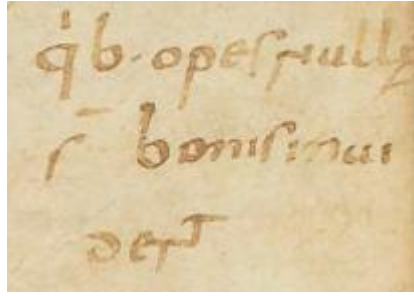 qͥb· opeſ nullę
ſ̄ boniſ inui
dent